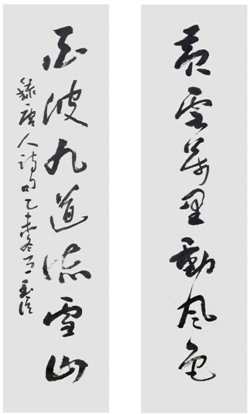 黄云万里動风色
白波九道流雪山
録唐人詩句乙未冬